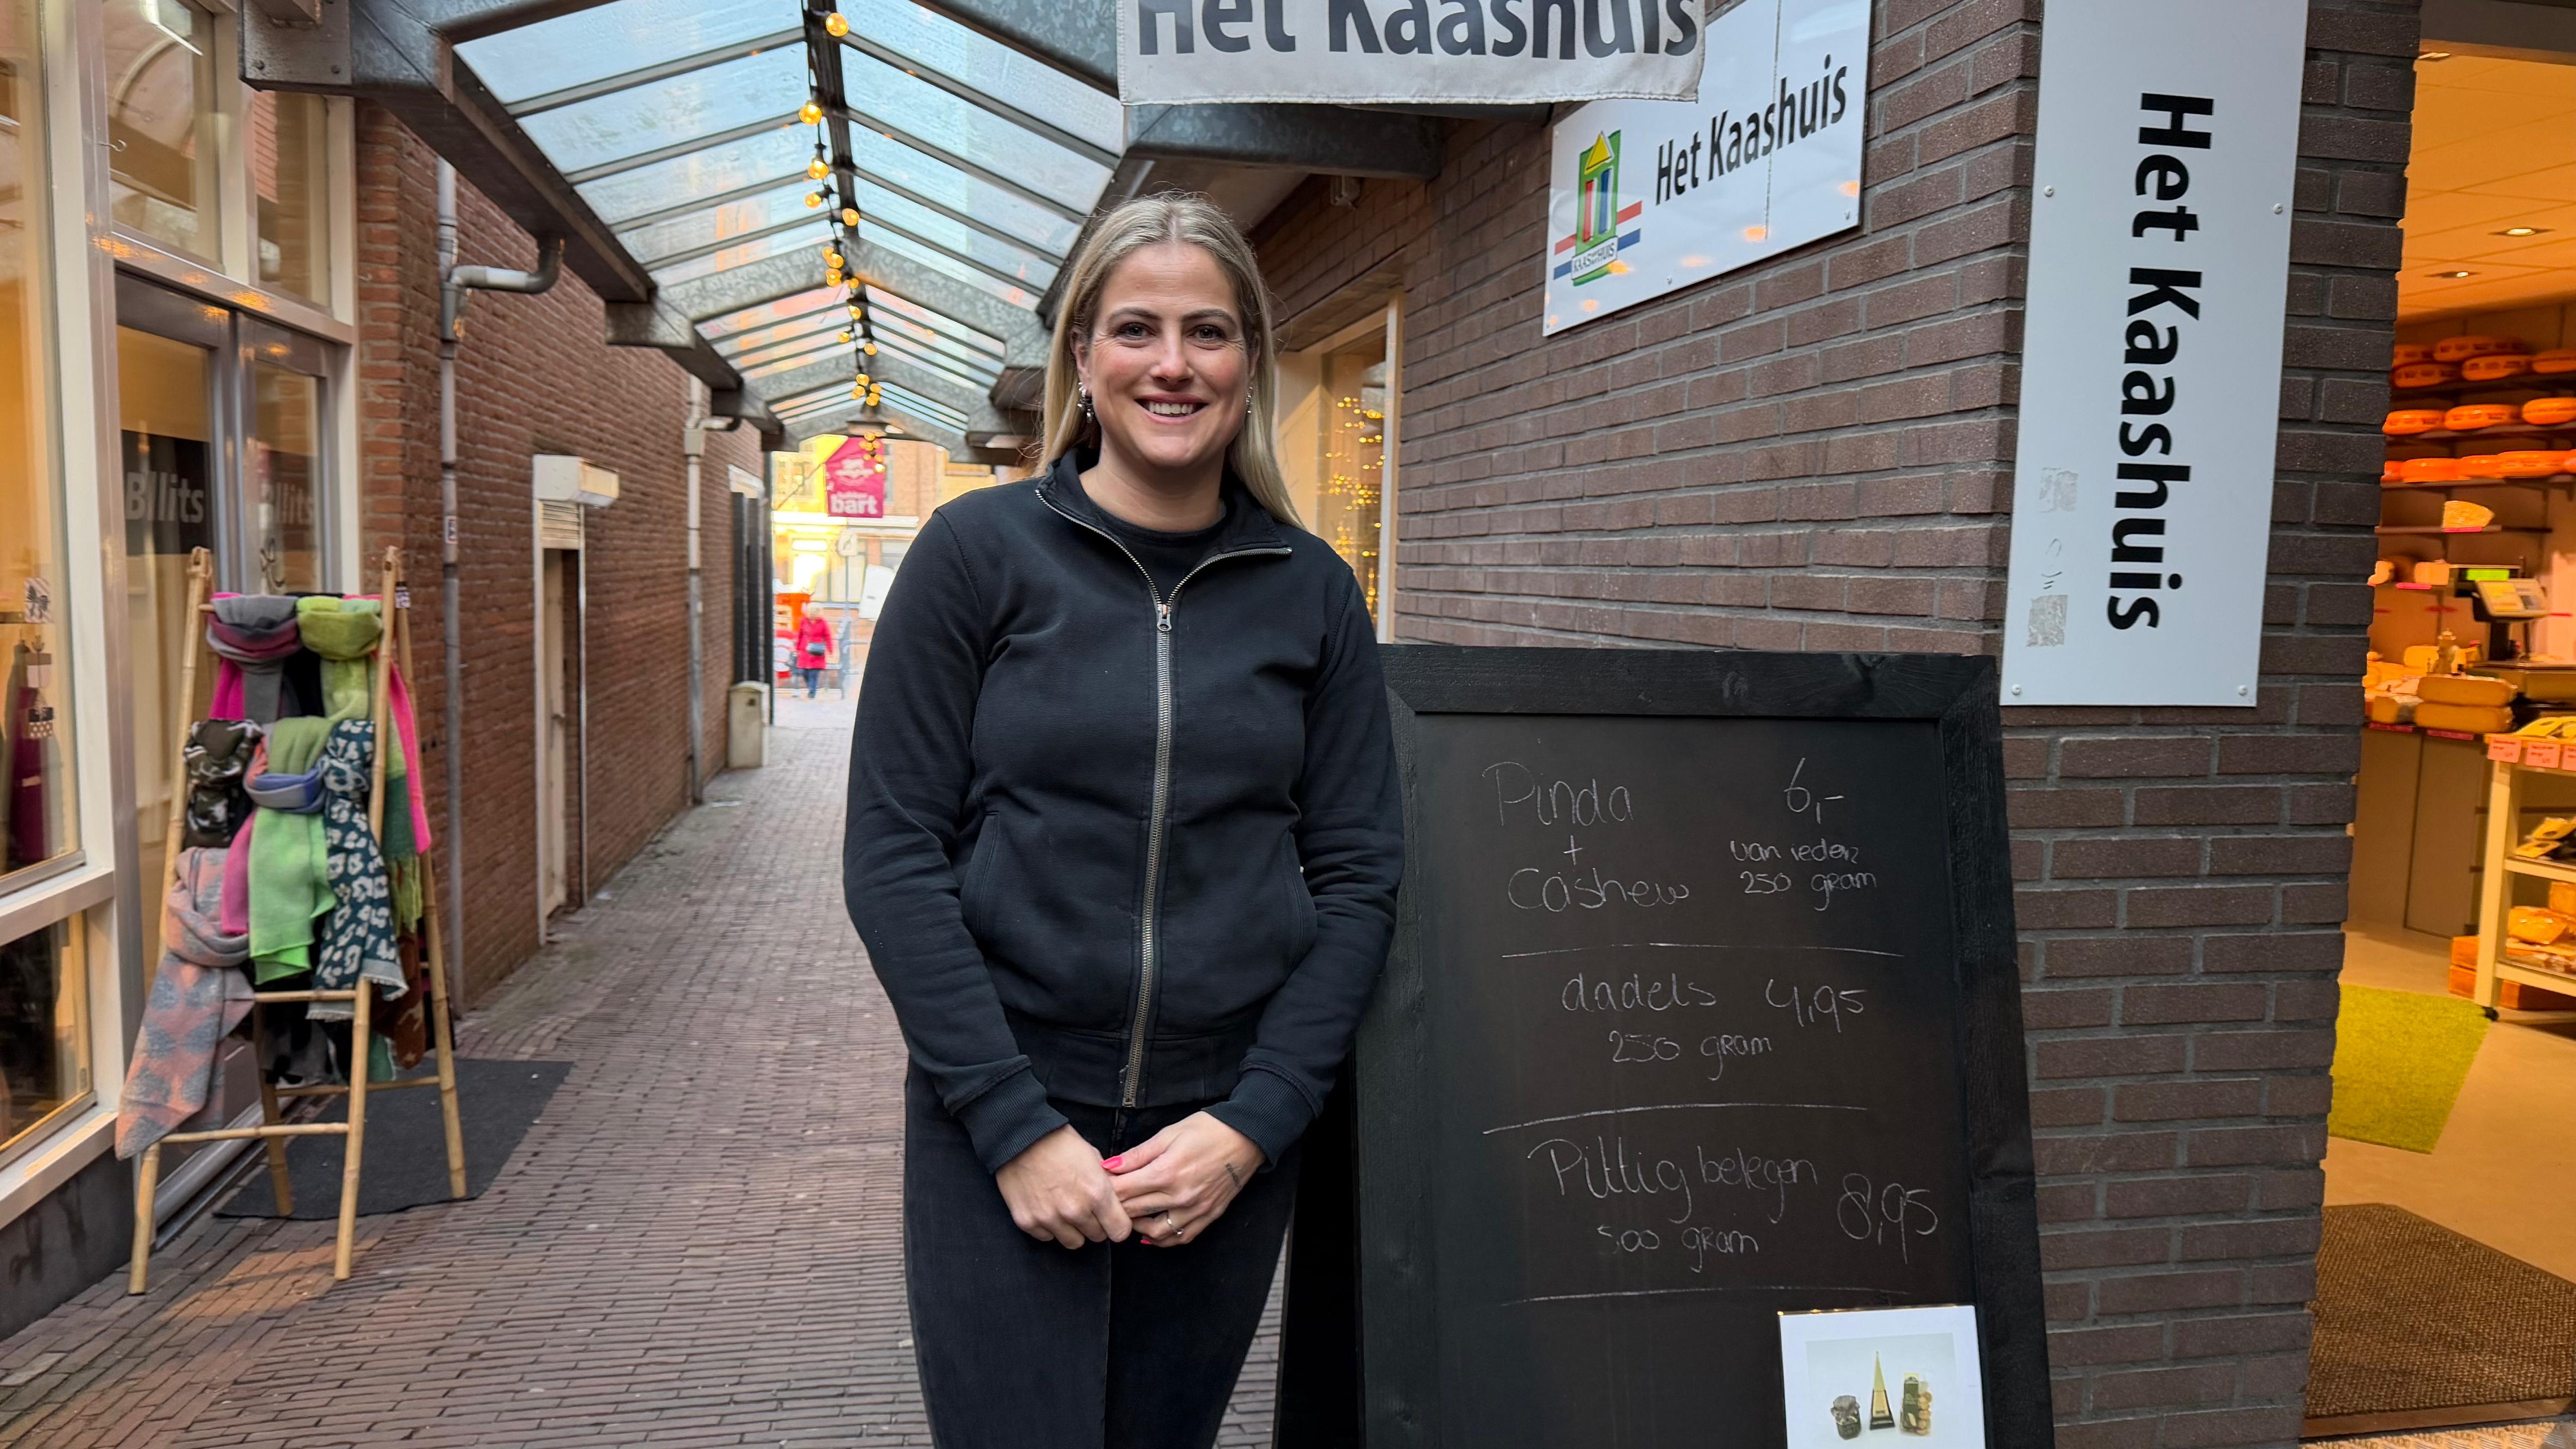 Het Kaashuis
Het Kaashuis
KAASHUIS
Het Kaashuis
Bllits
Bllits
bakker
bart
Pinda 6,-
+
van ieder
Cashew 250 gram
dadels 4,95
250 gram
Pittig belegen 8,95
500 gram